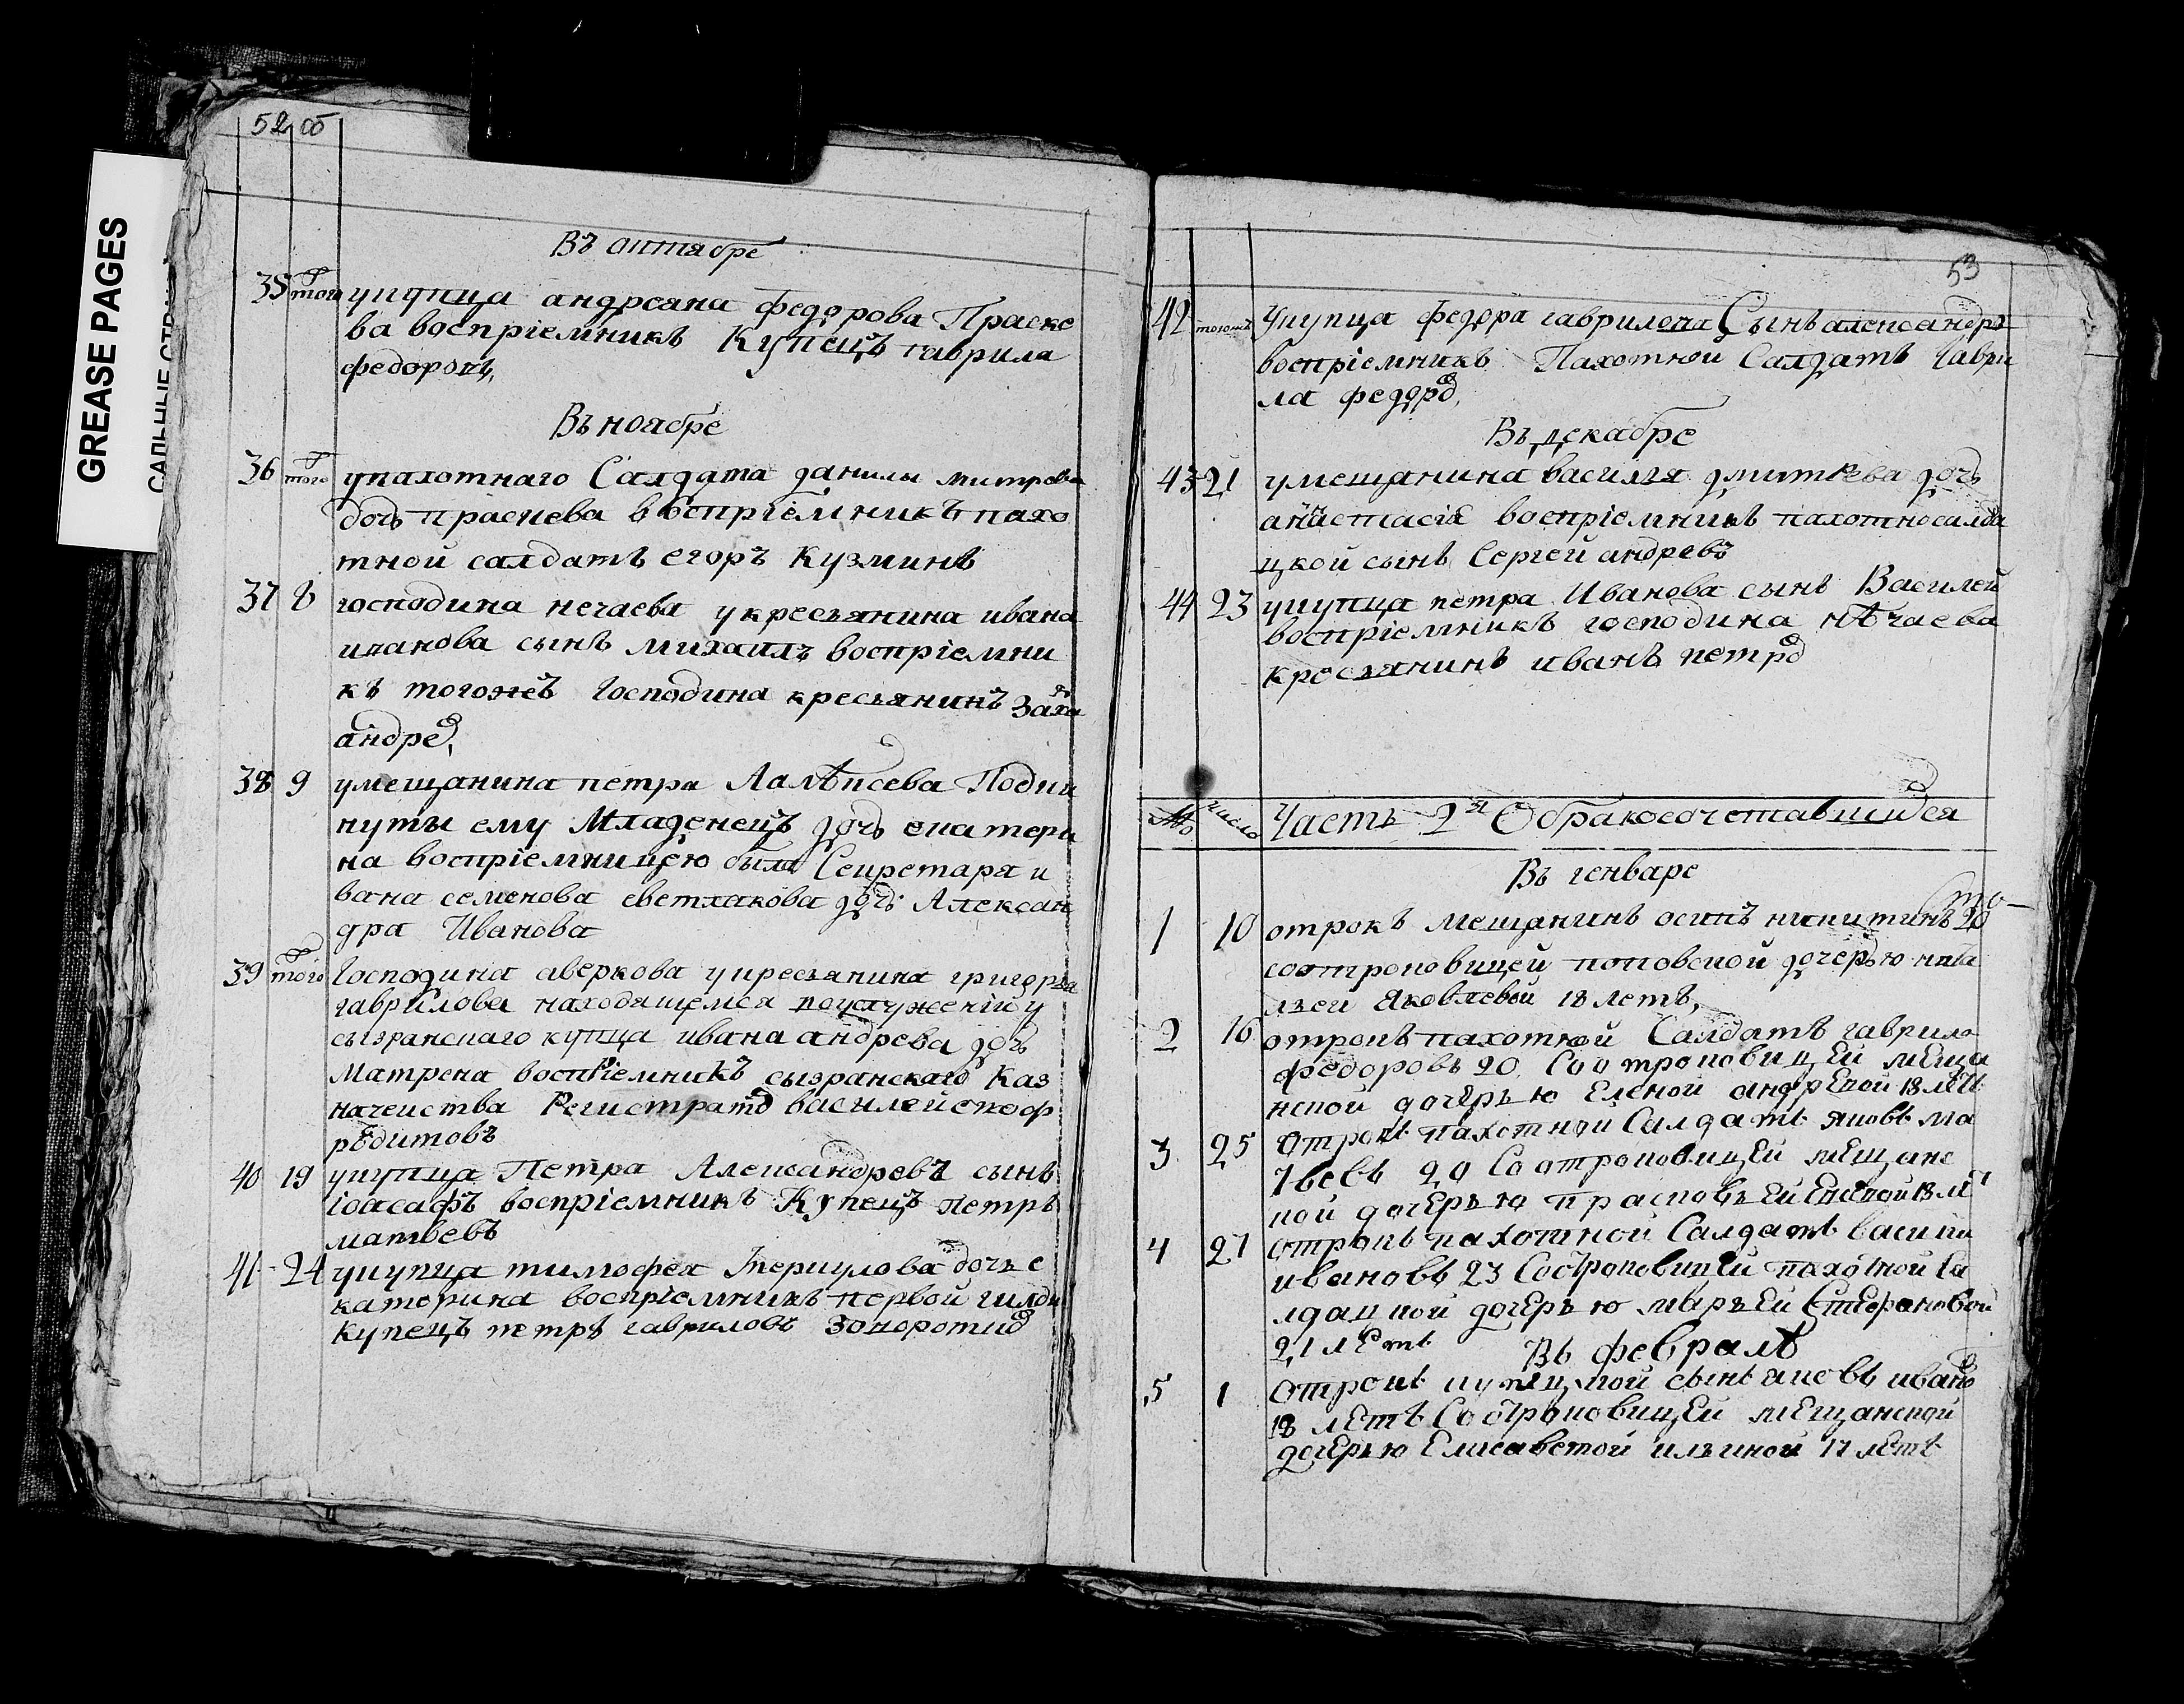 GREASE PAGES
52 об
Въ октябре
35 того укупца андреяна федорова Праске
ва воспріемникъ Купецъ гаврила
федоровъ
Въ ноябре
36 того упахотнаго Салдата данилы митрева
дочь праскева воспріемникъ пахо
тной салдатъ егоръ Кузминъ
37 8 господина нечаева укресьянина ивана
иванова сынъ михаилъ воспріемни
къ тогожеъ Господина кресьянинъ Заха
андре
38 9 умещанина петра Подки
нуты ему Младенецъ дочь екатери
на воспріемницею была Секретаря и
вана семенова светлакова дочь Алексан
дра Иванова
39 того Господина аверкова укресьянина григорья
гаврилова находящемся поуслуженію у
сызранскаго купца ивана андрева дочь
Матрена воспріемникъ сызранскаго Каз
начеиства Регистрато василей скоф
редитовъ
40 19 укупца Петра Александревъ сынъ
іоасафъ воспріемникъ Купецъ петръ
матвевъ
41 24 укупца тимофея дочь е
катерина воспріемникъ первой гилди
Купецъ петръ гавриловъ
53
42 тогожъ Укупца федора гаврилева Сынъ александръ
воспріемникъ Пахотной Салдатъ Гаври
ла федоро
Въ декабре
43 21 умещанина василья дмитрева дочь
анастасія воспріемникъ пахотносалда
цкой сынъ Сергей андревъ
44 23 укупца петра Иванова сынъ Василей
воспріемникъ господина нѣчаева
кресьянинъ иванъ петро
№ число Часть 2я Обракосочетавшихся
Въ генваре
1 10 отрокъ мещанинъ осипъ никитинъ 20
соотроковицей поповской дочерью ната
льей Яковлевой 18 летъ
2 16 отрокъ пахотной Салдатъ гаврило
федоровъ 20 Соотроковицей меща
нской дочерью Еленой андревой 18 лет
3 25 Отрокъ пахотной Салдатъ яковъ ма
твевъ 20 Соотроковицей мещанс
кой дочерью
4 27 Отрокъ пахотной Салдатъ васили
ивановъ 23 Соотроковицей пахотной са
лдацкой дочерью марьей Стефановой
21 летъ
Въ февралѣ
5 1 Отрокъ купецкой сынъ яковъ ивано
18 летъ Соотроковицей мещанской
дочерью Елисаветой ильиной 17 летъ